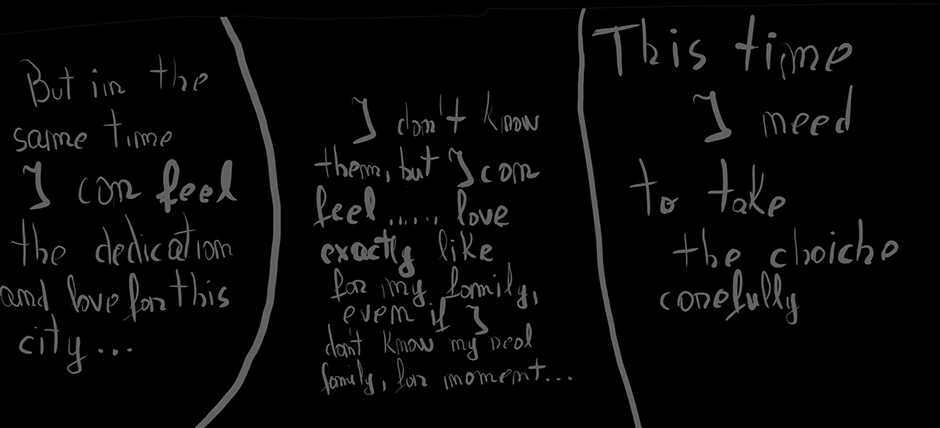 But in the
same time
I can feel
the dedication
and love for this
city...
I don't know
them, but I can
feel...... love
exactly like
for my family,
even if I
don't know my real
family, for moment...
This time
I need
to take
the choiche
carefully